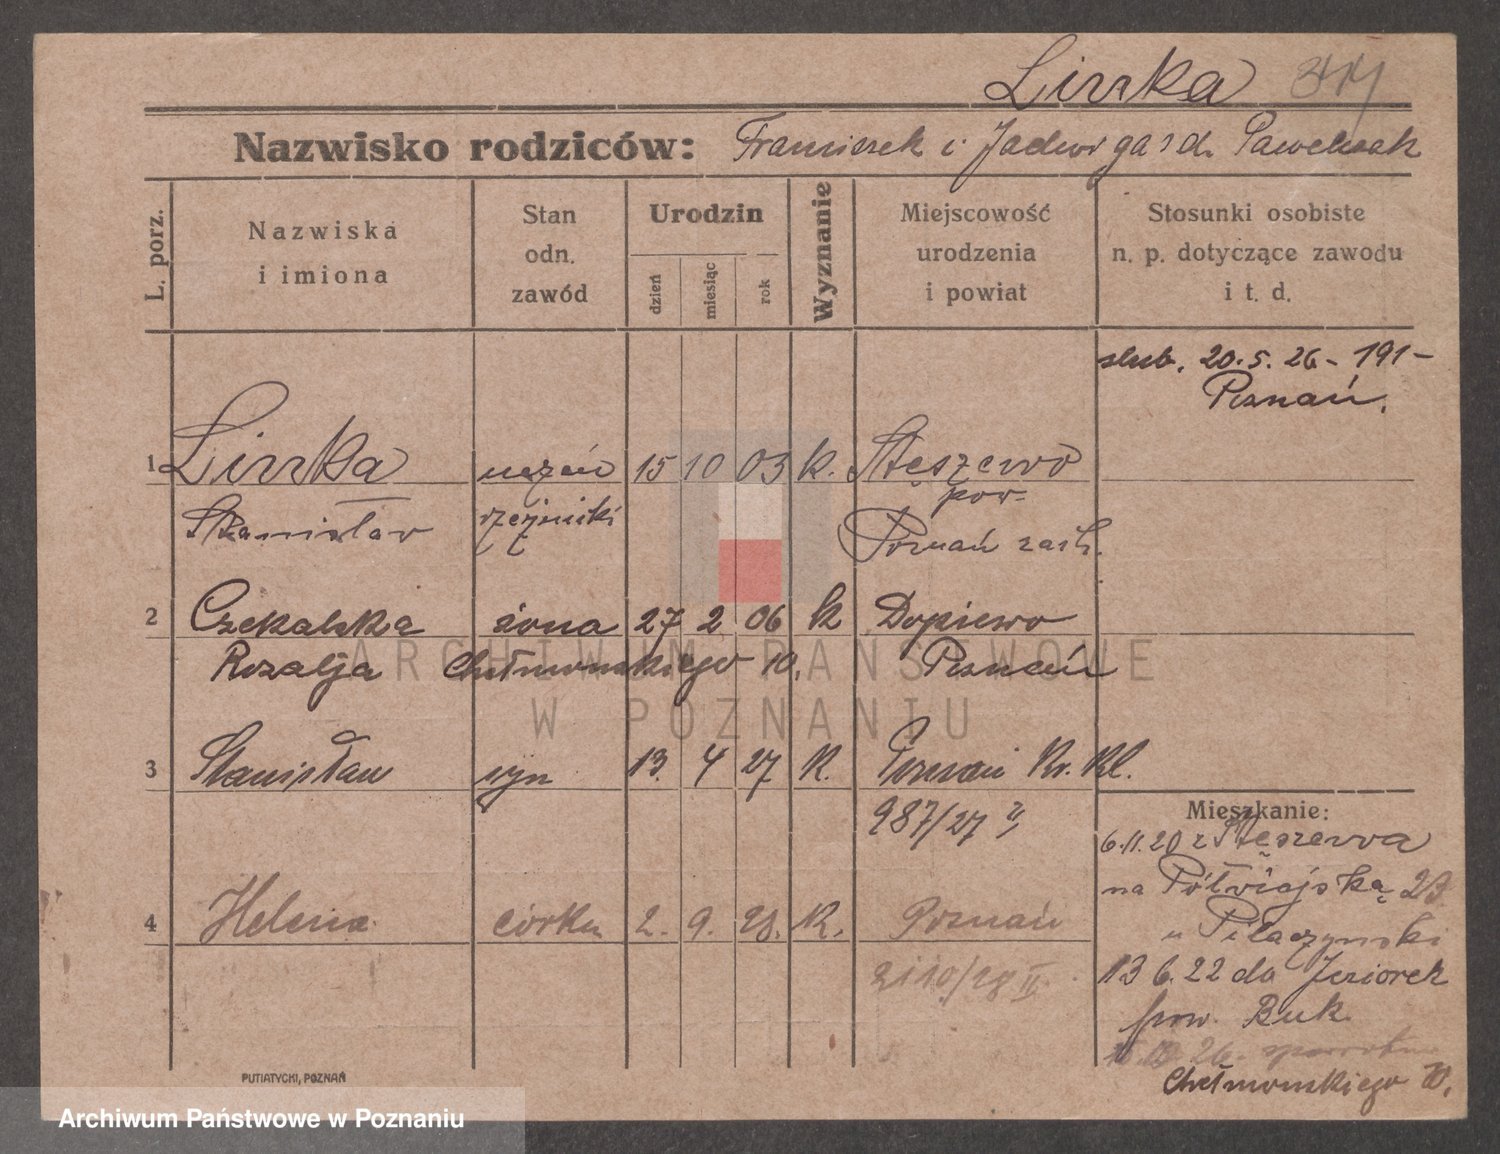 Liszka 344
Nazwisko rodziców: Franciszek i Jadwiga z d. Pawelczak
L. porz.
Nazwiska i imiona
Stan odn. zawód
Urodzin
dzień
miesiąc
rok
Wyznanie
Miejscowość urodzenia i powiat
Stosunki osobiste n. p. dotyczące zawodu i t. d.
slub. 20.5.26 - 191 -
Poznań.
1 Liszka uczeń 15 10 03 k. Stęszewo
pow.
Stanisław rzeźnicki Poznań zach.
2 Czekalska żona 27 2 06 k Dopiewo
Rozalja Chełmońskiego 10. Poznań
3 Stanisław syn 13. 4 27 K. Poznań Kr. Kl.
987/27 II
Mieszkanie:
6.11.20 z Stęszewa
na Półwiejską 23
u Pilaczynski
4 Helena córka 2. 9. 28. K. Poznań
2110/28 II
13 6.22 do Jeziorek
pow. Buk
26.
Chełmońskiego 10.
PUTIATYCKI, POZNAŃ
ARCHIWUM PAŃSTWOWE
W POZNANIU
Archiwum Państwowe w Poznaniu